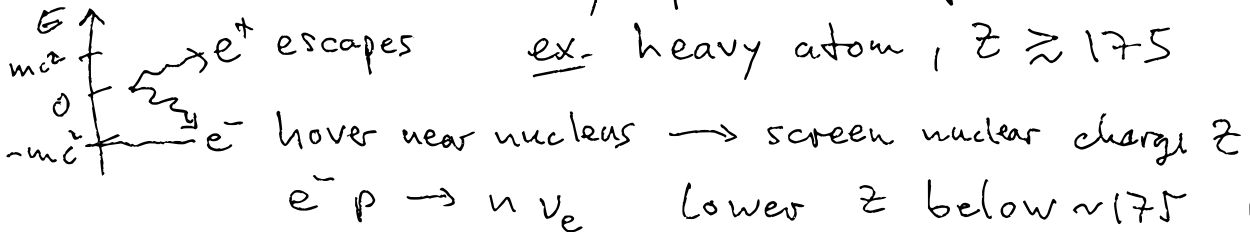 E
mc² e⁺ escapes ex. heavy atom, Z ≳ 175
0
-mc² e⁻ hover near nucleus → screen nuclear charge Z
e⁻ p → n νₑ Lower Z below ~175